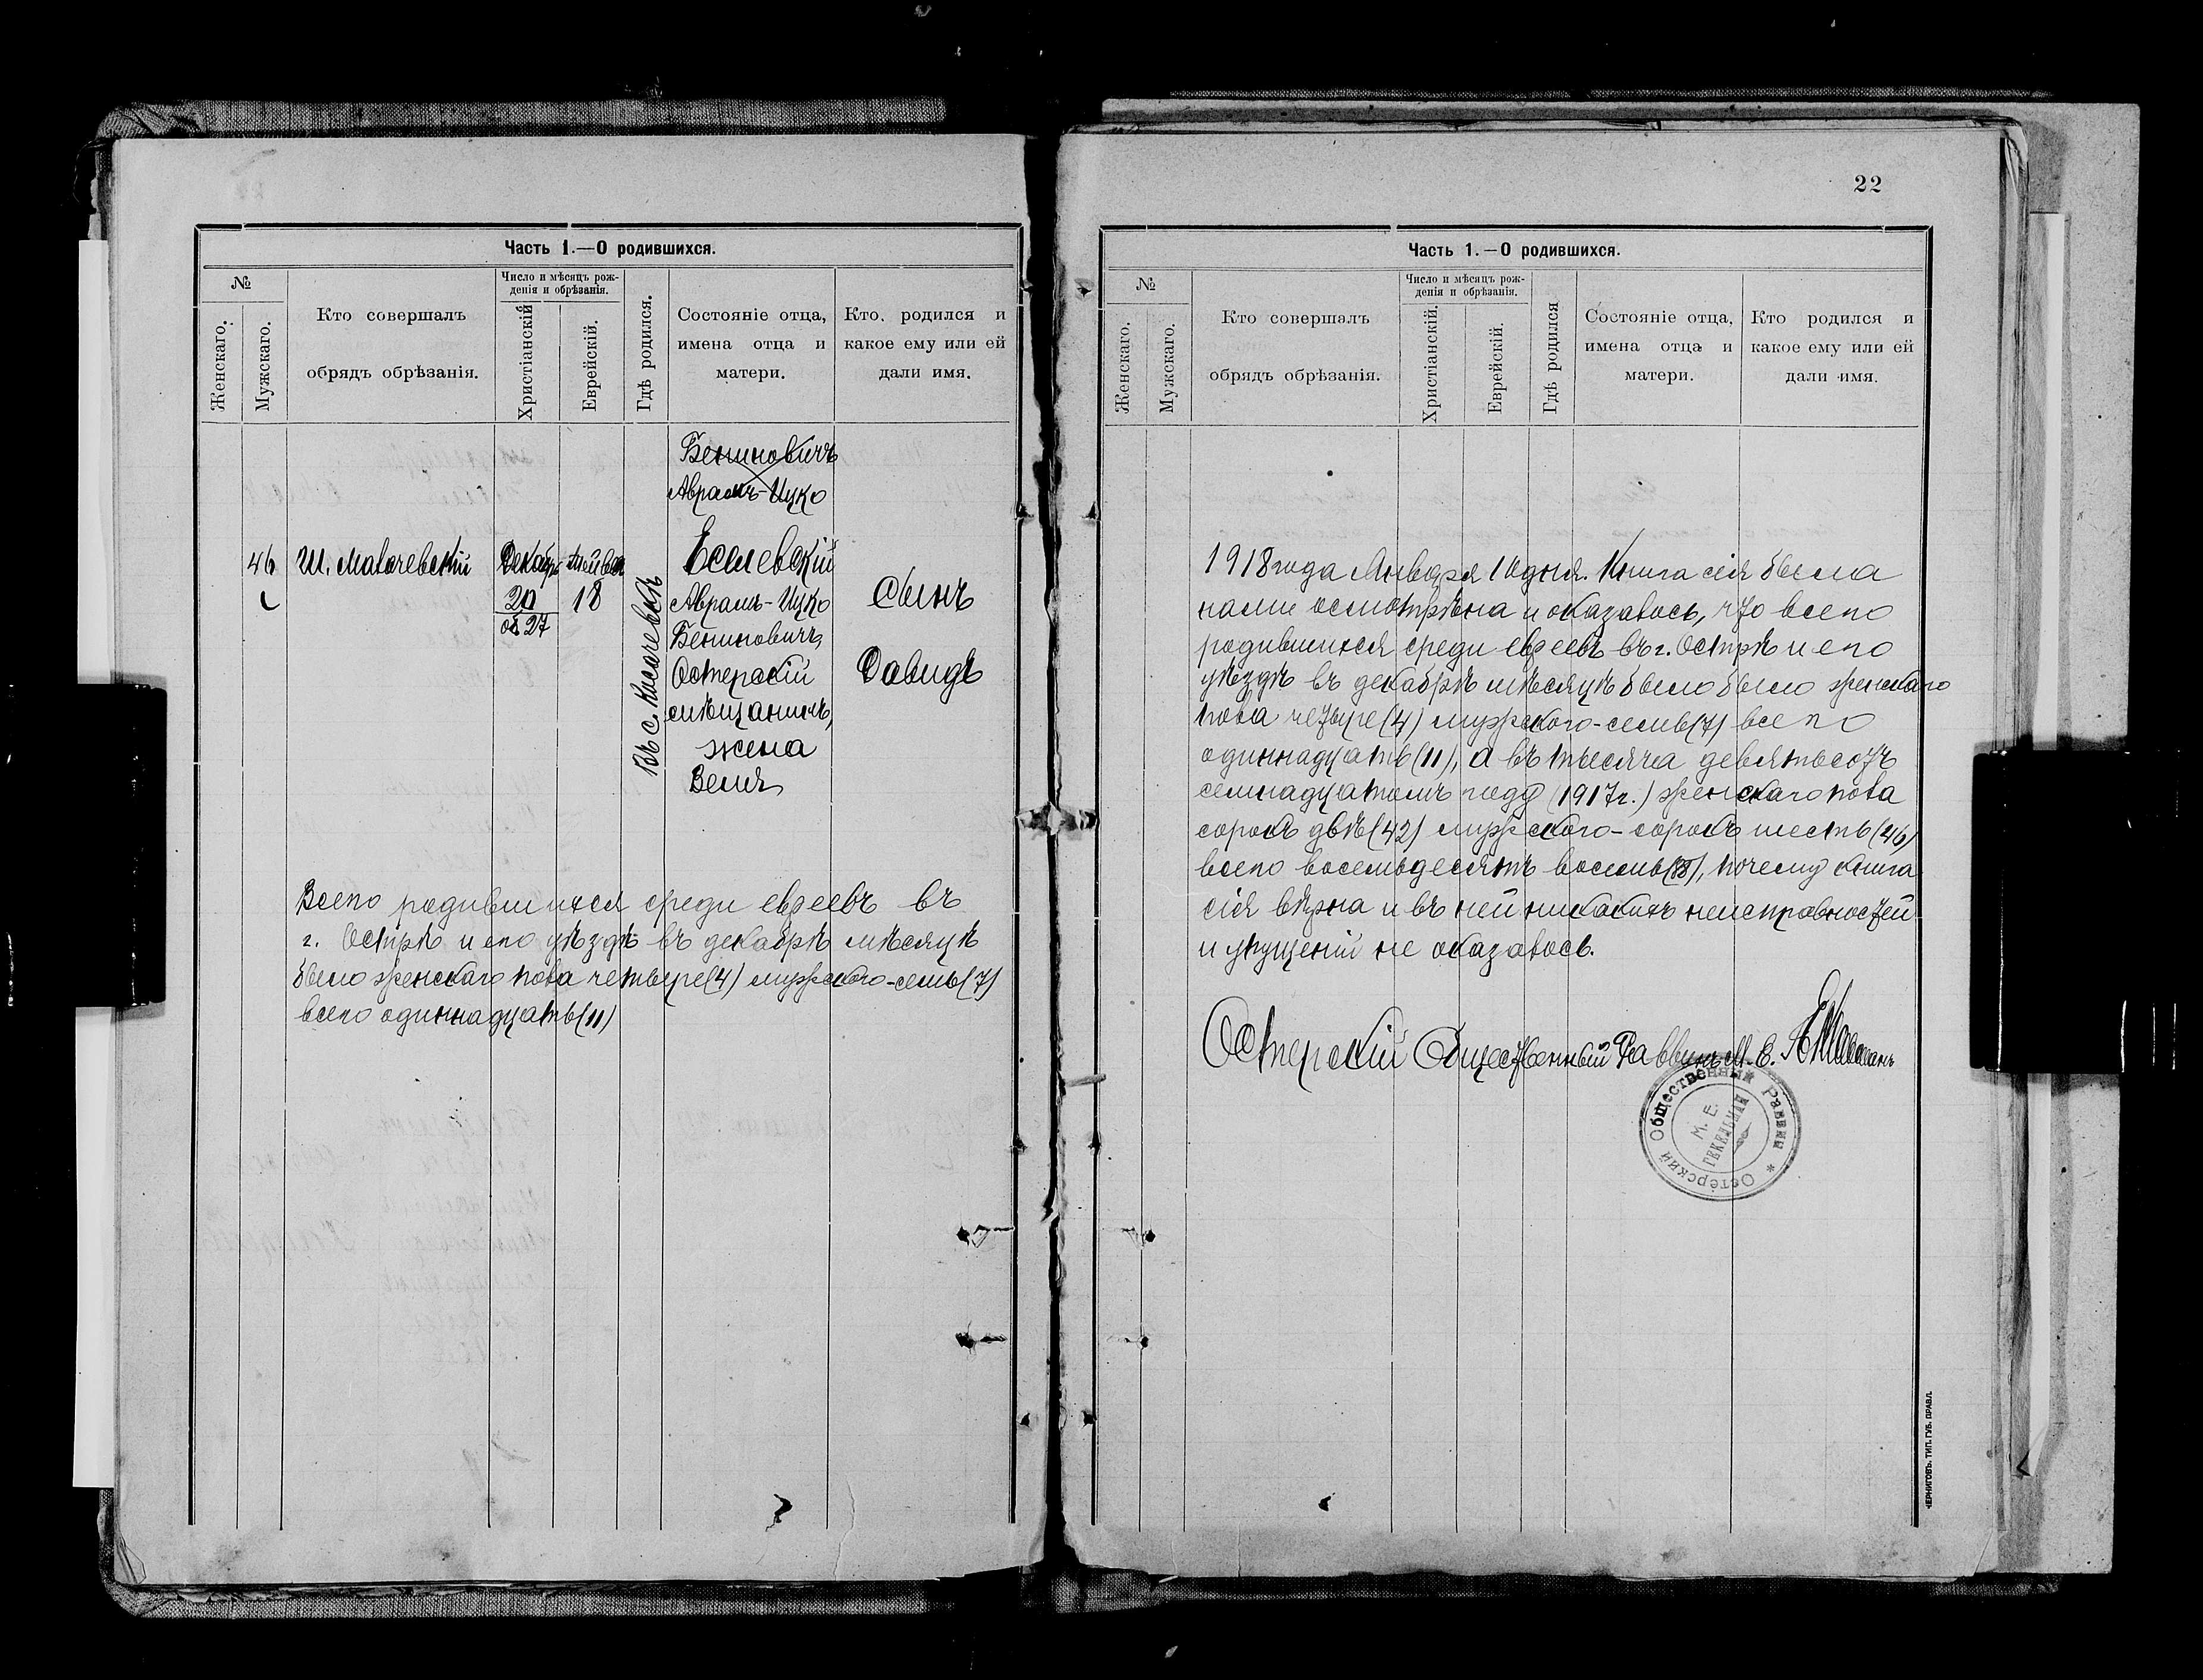 22
Часть 1.—О родившихся.
№
Женскаго.
Мужскаго.
Кто совершалъ
обрядъ обрѣзанія.
Число и мѣсяцъ рож-
денія и обрѣзанія.
Христіанскій
Еврейскій.
Гдѣ родился.
Состояніе отца,
имена отца и
матери.
Кто родился и
какое ему или ей
дали имя.
Бениновичъ
Аврамъ-Ицко
46 Ш. Декабр
20 18
об 27
Въ с.
Аврамъ-Ицко
Бениновичъ,
Остерскій
мѣщанинъ,
жена
Сынъ
Давидъ
Всего родившихся среди евреевъ въ
г. Острѣ и его уѣздѣ въ декабрѣ мѣсяцѣ
было женскаго пола четыре (4) мужского-семь (7)
всего одиннадцать (11)
Часть 1.—О родившихся.
№
Женскаго.
Мужскаго.
Кто совершалъ
обрядъ обрѣзанія.
Число и мѣсяцъ рож-
денія и обрѣзанія.
Христіанскій.
Еврейскій.
Гдѣ родился
Состояніе отца,
имена отца и
матери.
Кто родился и
какое ему или ей
дали имя.
1918 года Января 10 дня. Книга сія была
нами осмотрѣна и оказалось, что всего
родившихся среди евреевъ въ г. Острѣ и его
уѣздѣ въ декабрѣ мѣсяцѣ было было женскаго
пола четыре (4) мужского-семь (7) всего
одиннадцать (11), а въ тысяча девятьсотъ
семнадцатомъ году (1917г.) женскаго пола
сорокъ двѣ (42) мужского-сорокъ шесть (46)
всего восемьдесятъ восемь (88), почему книга
сія вѣрна и въ ней никакихъ неисправностей
и упущеній не оказалось.
Остерскій Общественный Раввинъ М. Е.
Остерский Общественный Раввин *
М. Е.
ЧЕРНИГОВЪ. ТИП. ГУБ. ПРАВЛ.